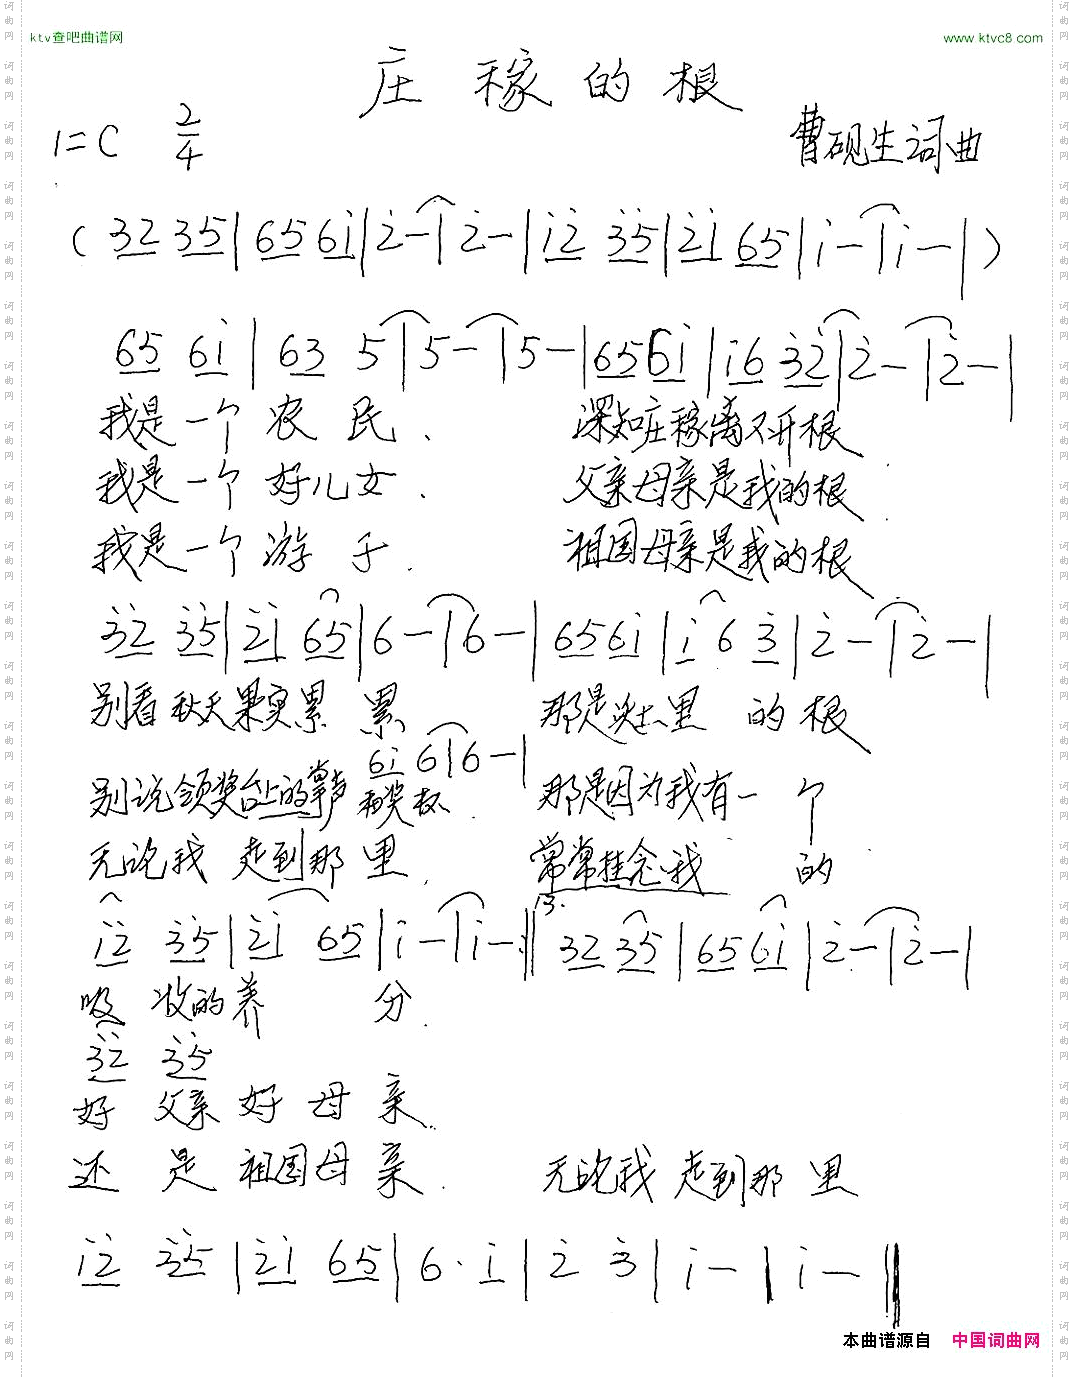 ktv查吧曲谱网 www.ktvc8.com
庄稼的根
1=C 2/4 曹砚生词曲
( 32 35 | 65 6i | 2 - | 2 - | i2 35 | 2i 65 | i - | i - | )
65 6i | 63 5 | 5 - | 5 - | 65 6i | i6 32 | 2 - | 2 - |
我是一个农民. 深知庄稼离不开根
我是一个好儿女. 父亲母亲是我的根.
我是一个游子. 祖国母亲是我的根
32 35 | 2i 65 | 6 - | 6 - | 65 6i | i 6 3 | 2 - | 2 - |
别看秋天果实累累 那是泥土里的根
6i 6 | 6 - |
别说领奖台上的掌声和奖杯. 那是因为我有一个
无论我走到那里. 常常挂念我的
i2 35 | 2i 65 | i - | i - :‖ 32 35 | 65 6i | 2 - | 2 - |
吸收的养分.
32 35
好父亲好母亲.
还是祖国母亲. 无论我走到那里
i2 35 | 2i 65 | 6 · i | 2 3 | i - | i - ‖
本曲谱源自 中国词曲网